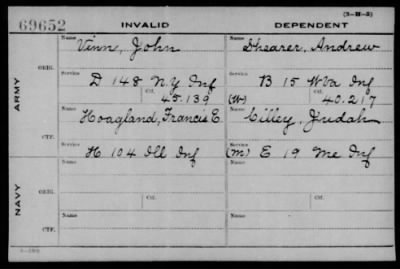 69652 INVALID DEPENDENT (3-M-5)
Name Name
Vinn, John Shearer, Andrew
ORIG. Service Service
D 148 N.Y. Inf B 15 W Va Inf
Ctf. 45.139 (W) Ctf. 40.217
ARMY
Name Name
Hoagland, Francis E. Cilley, Judah
CTF. Service Service
H 104 Ill Inf (M) E 19 Me Inf
Name Name
ORIG. Service Service
Ctf. Ctf.
NAVY
Name Name
CTF. Service Service